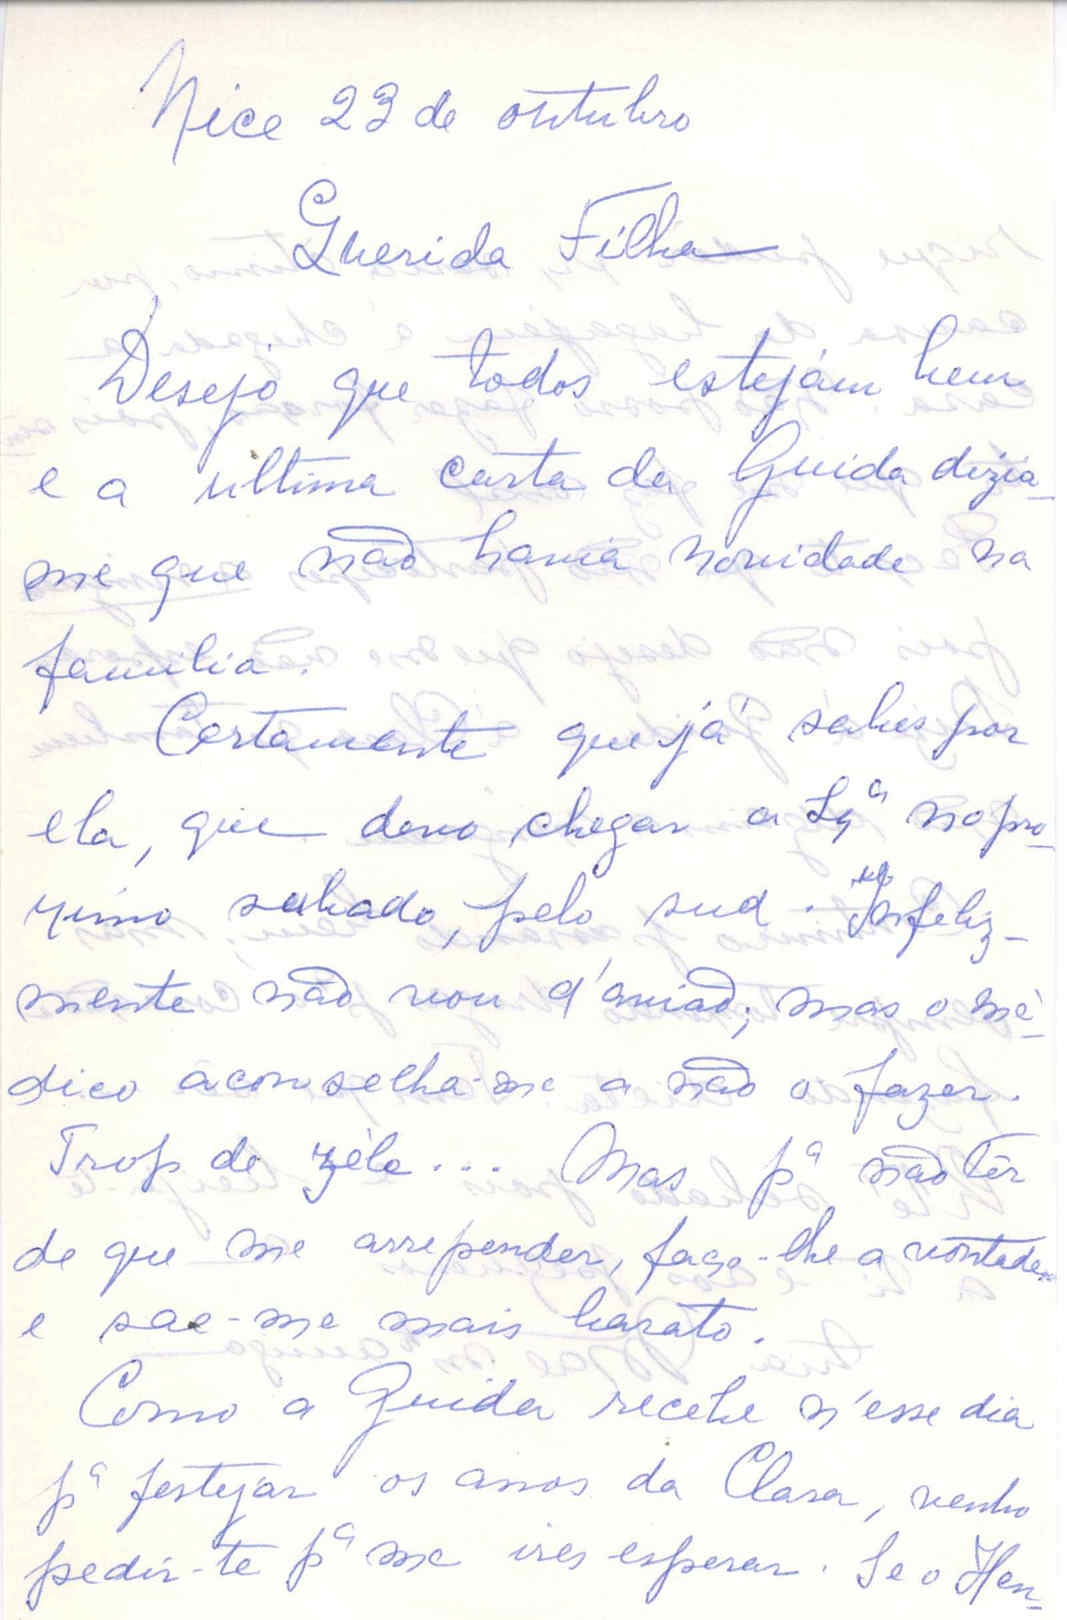 Nice 23 de outubro
Querida Filha
Desejo que todos estejám bem
e a ultima carta da Guida dizia-
me que não havia novidade na
familia.
Certamente que já sabes por
ela, que devo chegar a Lxª no pro-
ximo sabado, pelo sud. Infeliz-
mente não vou d'avião; mas o mé-
dico aconselha-me a não o fazer.
Trop de zèle... Mas pª não têr
de que me arrepender, faço-lhe a vontade
e sae-me mais barato.
Como a Guida recebe n'esse dia
pª festejar os anos da Clara, venho
pedir-te pª me ires esperar. Se o Hen-